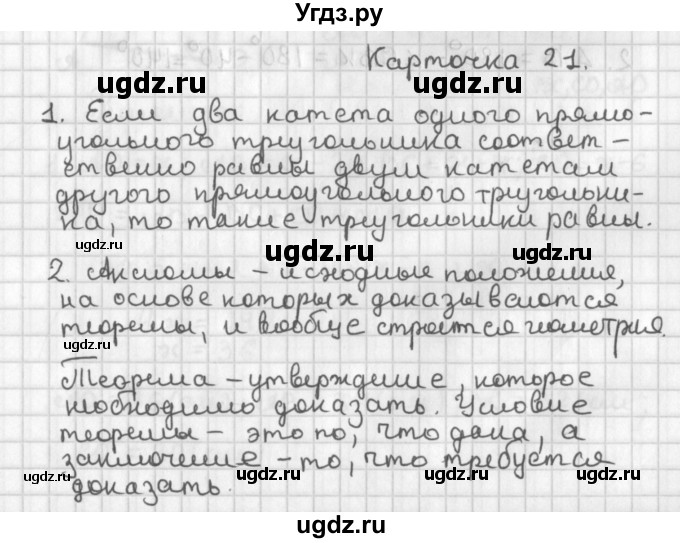 Угдз.ру
Карточка 21.
ugdz.ru ugdz.ru
1. Если два катета одного прямо-
угольного треугольника соответ-
ственно равны двум катетам
другого прямоугольного треугольни-
ка, то такие треугольники равны.
ugdz.ru ugdz.ru
ugdz.ru
2. Аксиомы – исходные положения,
на основе которых доказываются
теоремы, и вообще строится геометрия.
ugdz.ru ugdz.ru
Теорема – утверждение, которое
необходимо доказать. Условие
теоремы – это по, что дана, а
заключение – то, что требуется
доказать.
ugdz.ru ugdz.ru ugdz.ru
ugdz.ru